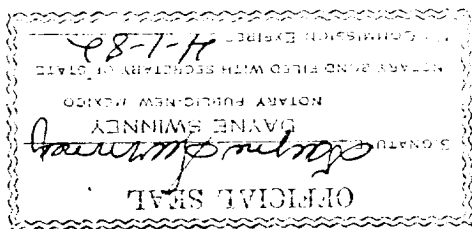 OFFICIAL SEAL
SIGNATU Dayne Swinney
DAYNE SWINNEY
NOTARY PUBLIC-NEW MEXICO
NOTARY BOND FILED WITH SECRETARY OF STATE
COMMISSION EXPIRES 4-1-82